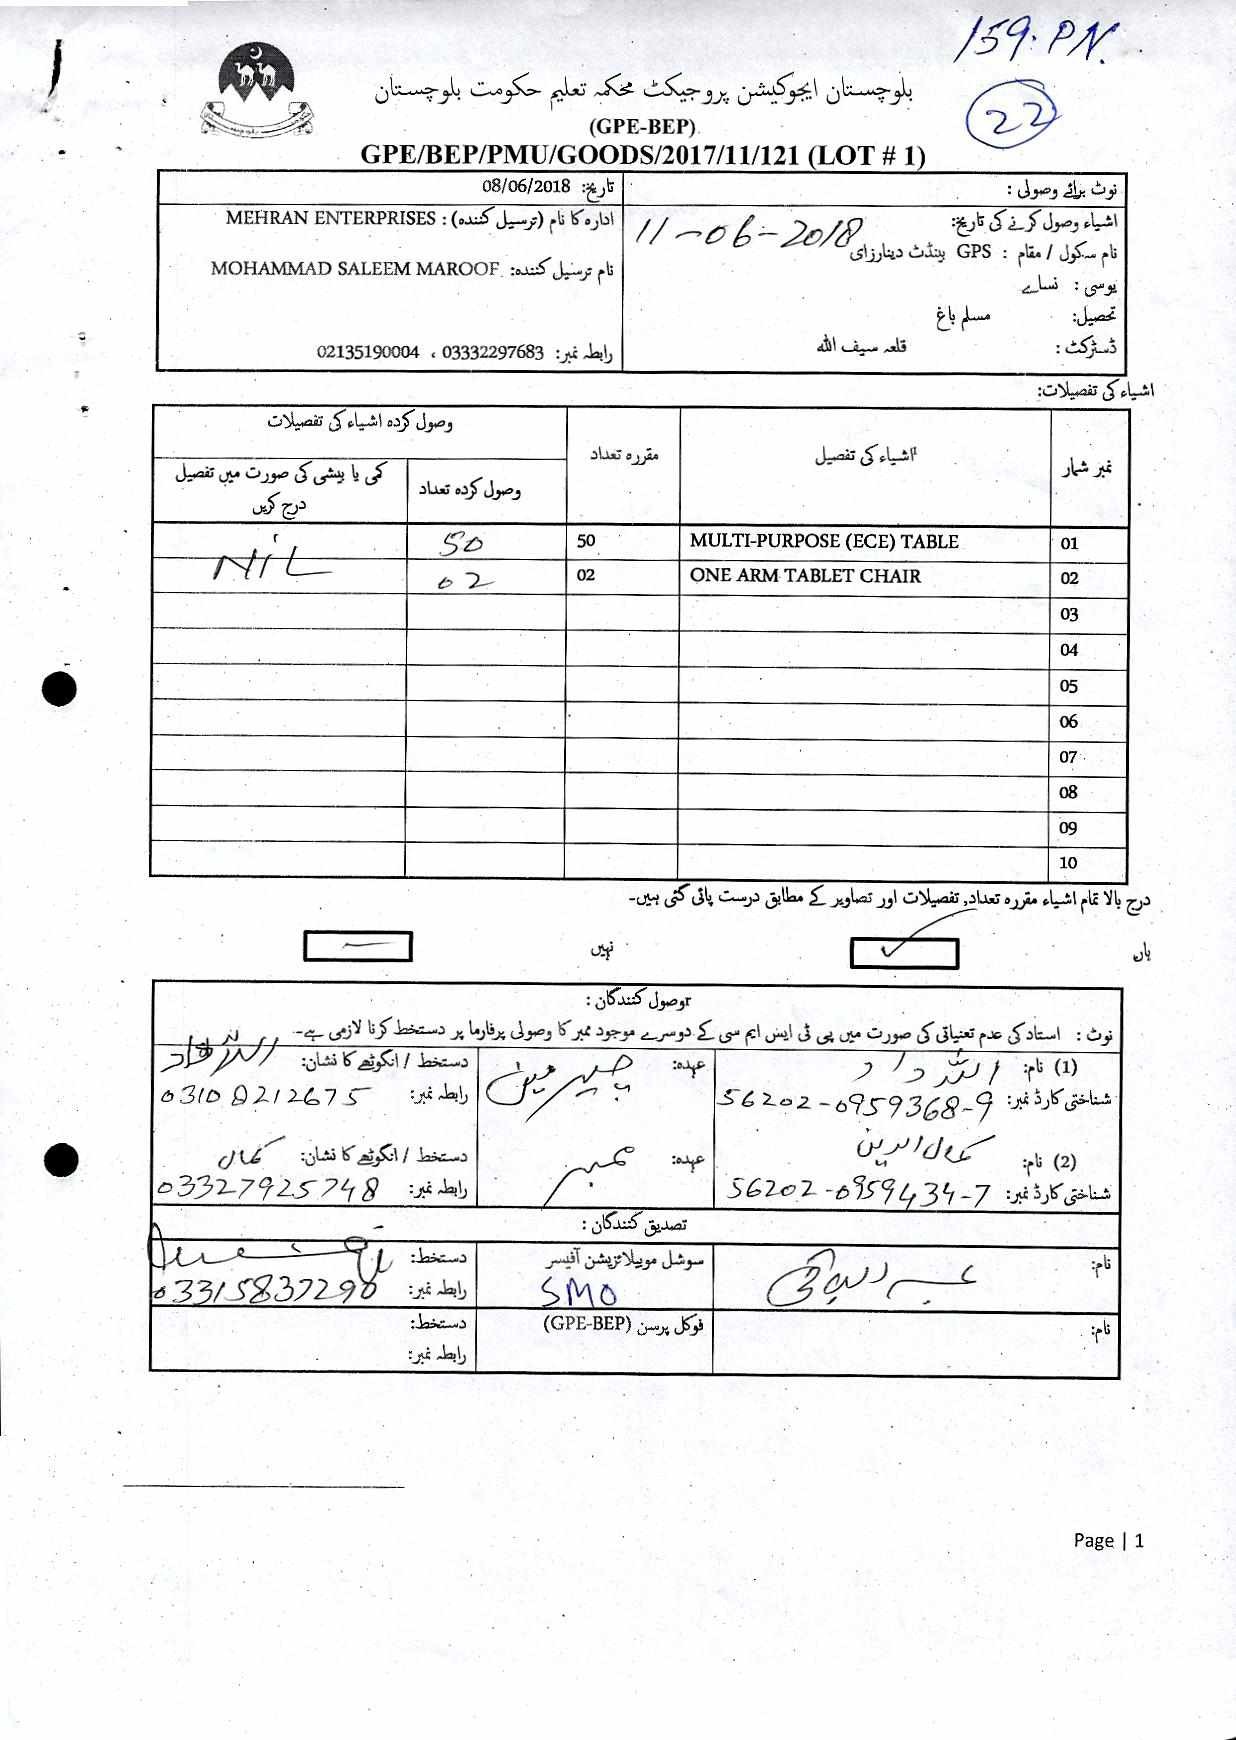 159. PN.
22
بلوچستان ایجوکیشن پروجیکٹ محکمہ تعلیم حکومت بلوچستان
(GPE-BEP)
GPE/BEP/PMU/GOODS/2017/11/121 (LOT # 1)
نوٹ برائے وصولی :
اشیاء وصول کرنے کی تاریخ: 11-06-2018
نام سکول / مقام : GPS پنڈٹ دینارزای
یوسی : نساے
تحصیل: مسلم باغ
ڈسٹرکٹ : قلعہ سیف اللہ
تاریخ: 08/06/2018
ادارہ کا نام (ترسیل کنندہ) : MEHRAN ENTERPRISES
نام ترسیل کنندہ: MOHAMMAD SALEEM MAROOF
رابطہ نمبر: 03332297683 ، 02135190004
اشیاء کی تفصیلات:
نمبر شمار اشیاء کی تفصیل مقررہ تعداد وصول کردہ اشیاء کی تفصیلات
وصول کردہ تعداد کمی یا بیشی کی صورت میں تفصیل درج کریں
01 MULTI-PURPOSE (ECE) TABLE 50 50 NIL
02 ONE ARM TABLET CHAIR 02 02
03
04
05
06
07
08
09
10
درج بالا تمام اشیاء مقررہ تعداد, تفصیلات اور تصاویر کے مطابق درست پائی گئی ہیں۔
ہاں ✓ نہیں —
وصول کنندگان :
نوٹ : استاد کی عدم تعنیاتی کی صورت میں پی ٹی ایس ایم سی کے دوسرے موجود ممبر کا وصولی پرفارما پر دستخط کرنا لازمی ہے۔
(1) نام: اللہ داد عہدہ: چیرمین دستخط / انگوٹھے کا نشان:
شناختی کارڈ نمبر: 56202-0959368-9 رابطہ نمبر: 03108212675
(2) نام: کمال الدین عہدہ: ممبر دستخط / انگوٹھے کا نشان: کمال
شناختی کارڈ نمبر: 56202-0959434-7 رابطہ نمبر: 03327925748
تصدیق کنندگان :
نام: سوشل موبیلائزیشن آفیسر دستخط:
SMO رابطہ نمبر: 03315837290
نام: فوکل پرسن (GPE-BEP) دستخط:
رابطہ نمبر:
Page | 1